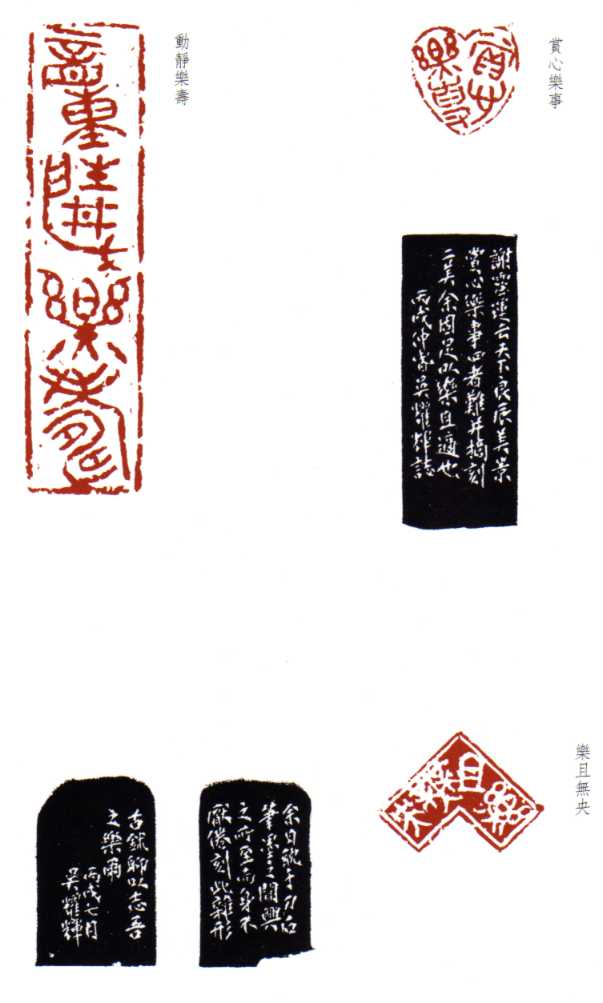 賞心樂事
賞心樂事
謝靈運云天下良辰美景
賞心樂事四者難并摘刻
二美余固足以樂且適也
丙戌仲吳耀輝誌
動靜樂壽
動靜樂壽
樂且無央
樂且無央
余日執于刀石
筆墨之間興
之所至而身不
厭倦刻此雜形
古鉨聊以志吾
之樂爾
丙戌七月
吳耀輝